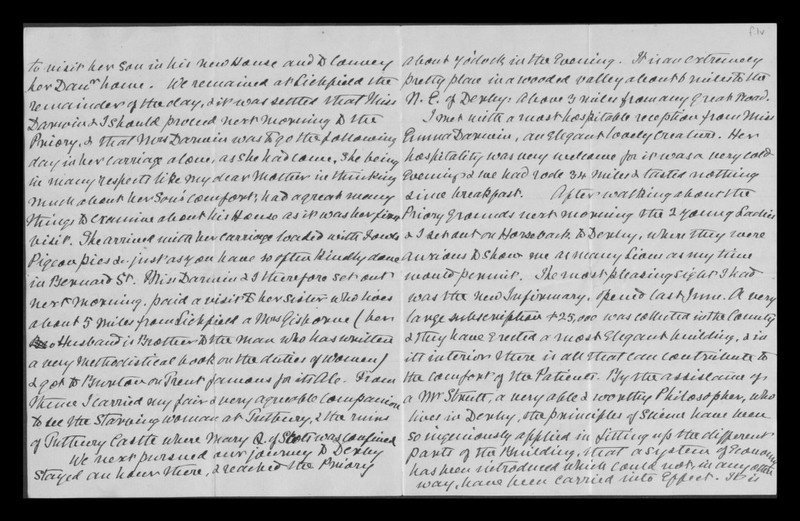 to visit her Son in his new House and to convey
her Daur home. We remained at Lichfield the
remainder of the day, & it was settled that Miss
Darwin & I should proceed next morning to the
Priory, & that Mrs Darwin was to go the following
day in her carriage alone, as she had come, she being
in many respects like my dear Mother in thinking
much about her Son's comfort; had a great many
things to examine about his House as it was her first
visit. She arrived with her carriage loaded with Fowls
Pigeon pies &c just as you have so often kindly done
in Bernard St. Miss Darwin & I therefore set out
next morning. paid a visit to her sister who lives
about 5 miles from Lichfield a Mrs Gisborne (her
Husband is Brother to the man who has written
a very Methodistical book on the duties of women)
& got to Burton on Trent famous for its Ale. From
thence I carried my fair & very agreable Companion
to see the Starving woman at Tutbury, & the ruins
of Tutbury Castle where Mary Q. of Scots was confined
We next pursued our journey to Derby
stayed an hour there, & reached the Priory
f.1v
about 7 o'clock in the Evening. It is an extremely
pretty place in a wooded valley about 6 miles to the
N.E. of Derby: above 3 miles from any great Road.
I met with a most hospitable reception from Miss
Emma Darwin, an Elegant lovely Creature. Her
hospitality was very welcome for it was a very cold
Evening & we had rode 34 miles & tasted nothing
since breakfast. After walking about the
Priory grounds next morning the 2 young Ladies
& I set out on Horseback to Derby, where they were
anxious to show me as many Lions as my time
would permit. The most pleasing sight I had
was the new Infirmary. opened last June. A very
large subscription £25,000 was collected in the County
& they have Erected a most Elegant building, & in
its interior there is all that can contribute to
the comfort of the Patients. By the assistance of
a Mr Strutt, a very able & worthy Philosopher, who
lives in Derby, the principles of Science have been
so ingeniously applied in fitting up the different
parts of the Building, that a system of Economy
has been introduced which could not, in any other
way, have been carried into Effect. It is